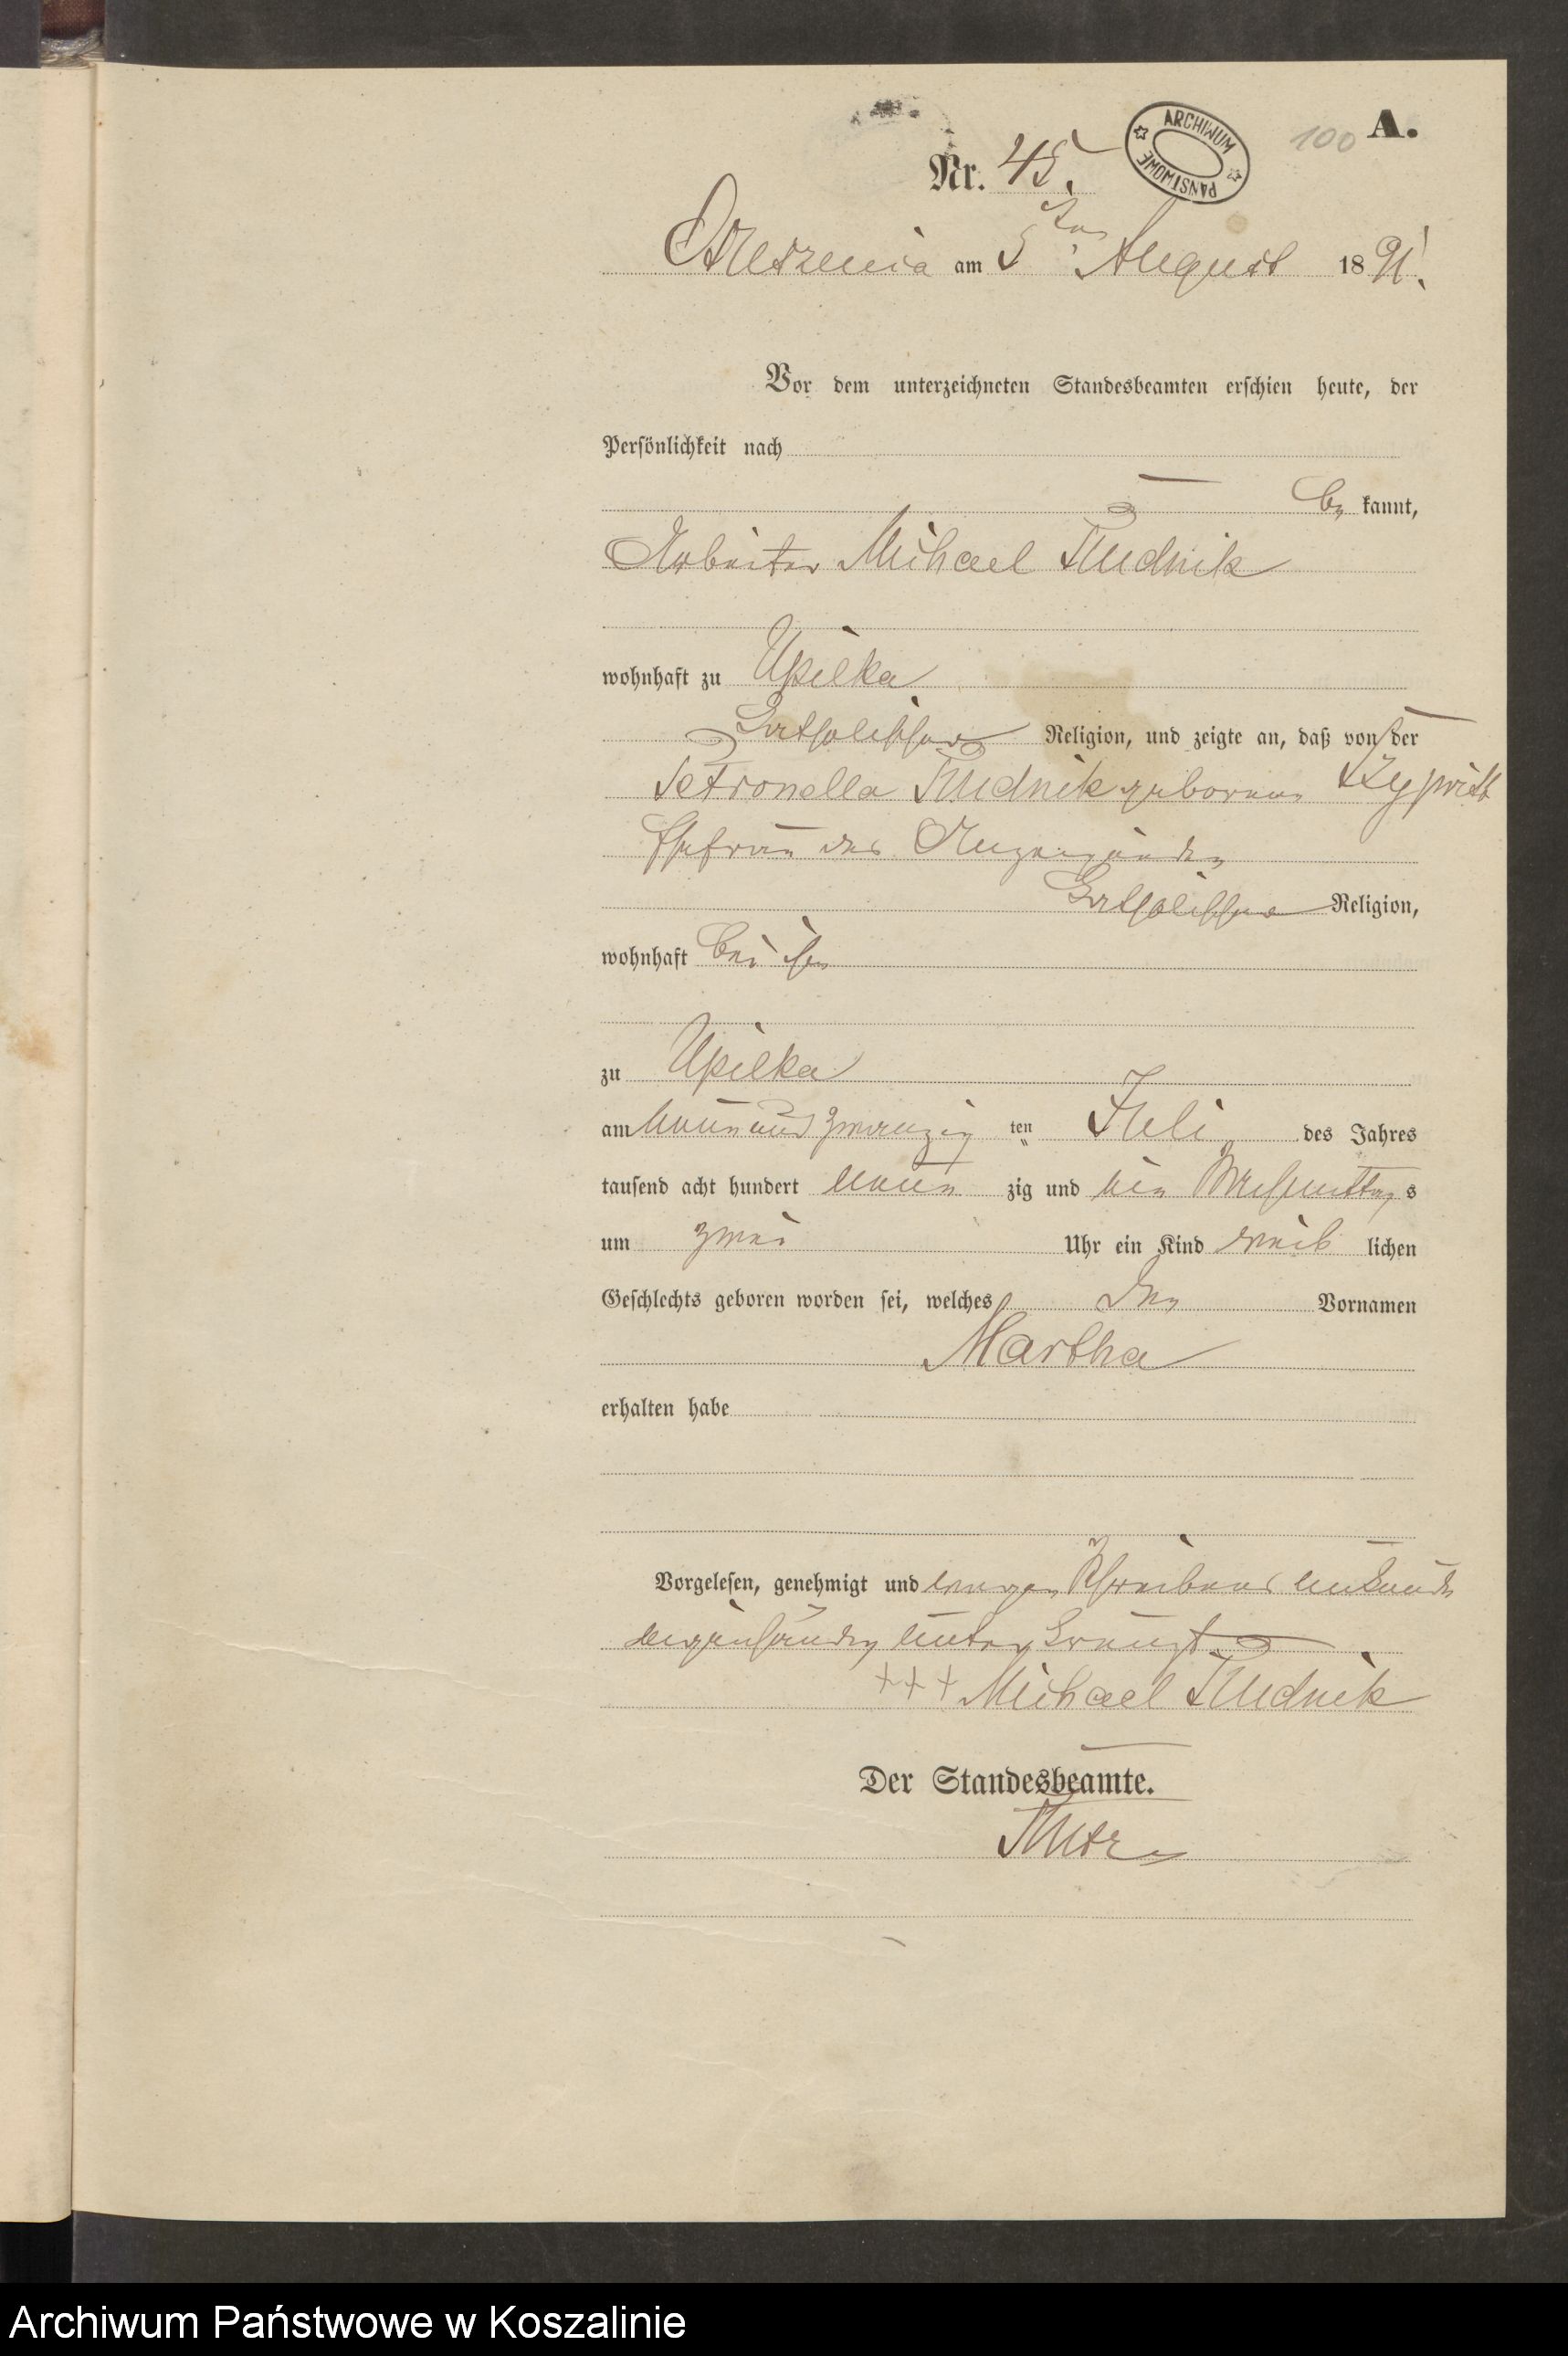 ARCHIWUM PAŃSTWOWE
100 A.
Nr. 45.
am 5ten August 1891.
Vor dem unterzeichneten Standesbeamten erschien heute, der
Persönlichkeit nach
be kannt,
Arbeiter Michael Rudnik
wohnhaft zu Upilka
katholischer Religion, und zeigte an, daß von der
Petronella Rudnik geborene
Ehefrau des Anzeigenden
katholischer Religion,
wohnhaft bei ihm
zu Upilka
am neunundzwanzig ten Juli des Jahres
tausend acht hundert neun zig und ein Nachmittag s
um zwei Uhr ein Kind weib lichen
Geschlechts geboren worden sei, welches den Vornamen
Martha
erhalten habe
Vorgelesen, genehmigt und wegen Schreibens unkunde
eigenhändig unterkreuzt
+++ Michael Rudnik
Der Standesbeamte.
Archiwum Państwowe w Koszalinie